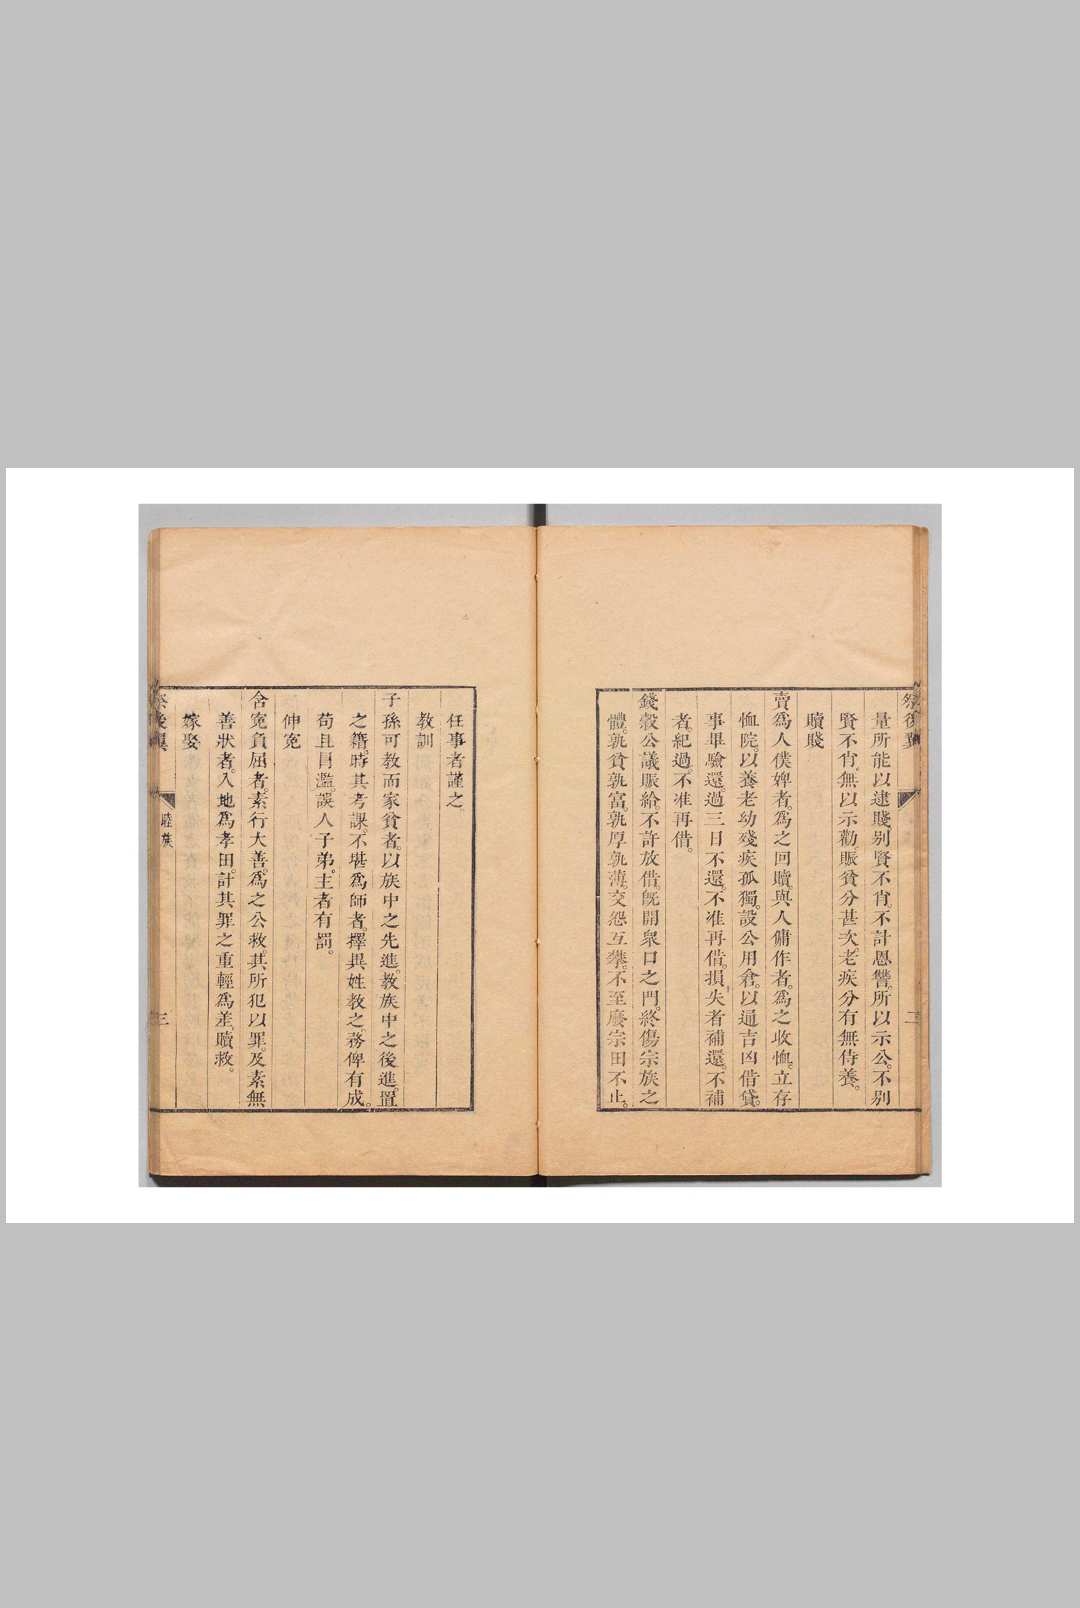 量所能以逮賤。別賢不肖。不計恩讐。所以示公。不別
賢不肖。無以示勸。賑貧分甚次。老疾分有無侍養。
贖賤
賣爲人僕婢者。爲之回贖。與人傭作者。爲之收恤。立存
恤院。以養老幼殘疾孤獨。設公用倉。以通吉凶借貸。
事畢驗還。過三日不還。不准再借。損失者補還。不補
者紀過。不准再借。
錢糓公議賑給。不許放借。旣開衆口之門。終傷宗族之
體。孰貧孰富。孰厚孰薄。交怨互攀。不至廢宗田不止。
任事者謹之
教訓
子孫可教而家貧者。以族中之先進。教族中之後進。置
之籍。時其考課。不堪爲師者。擇異姓教之。務俾有成。
苟且冒濫。誤人子弟。主者有罰。
伸寃
含寃負屈者。素行大善。爲之公救其所犯以罪。及素無
善狀者。入地爲孝田。計其罪之重輕爲差。贖救。
嫁娶
睦族
三